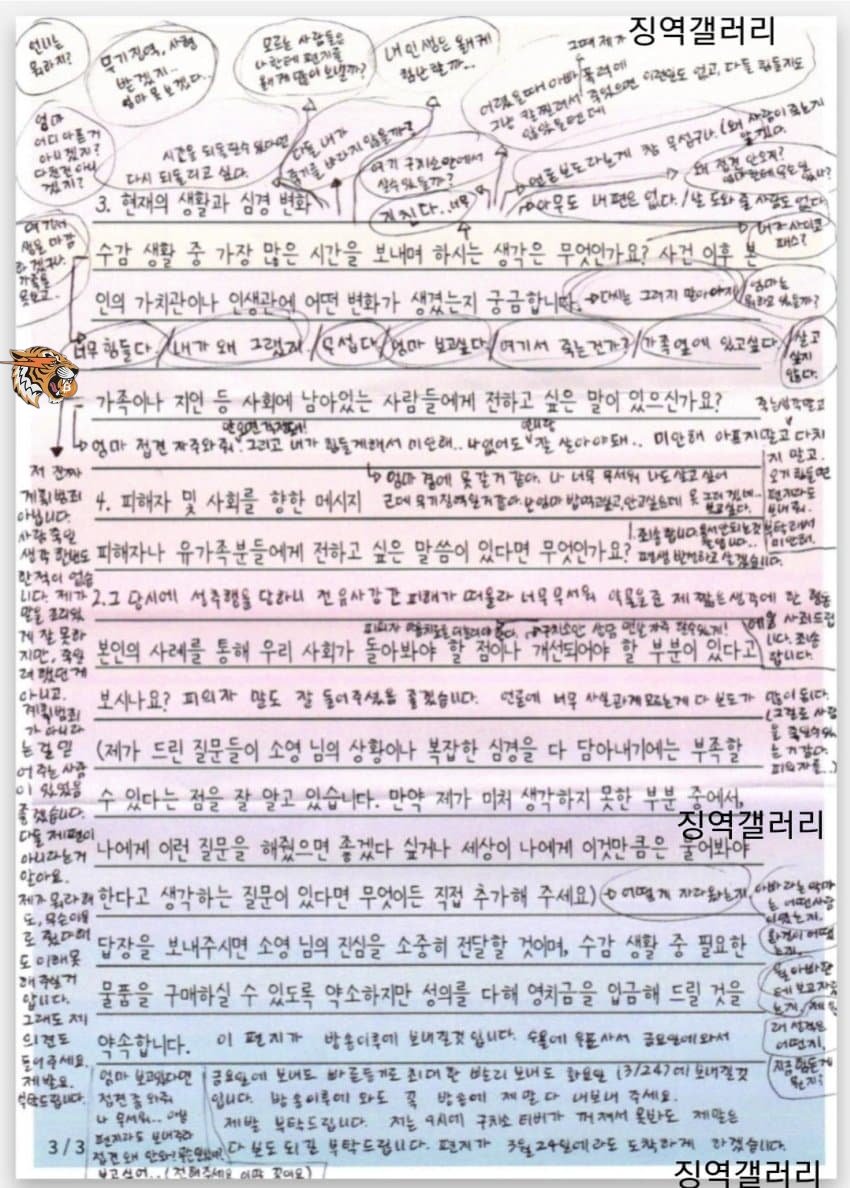 징역갤러리
언니는
뭐라지?
무기징역, 사형
받겠지..
엄마 못 보겠다..
모르는 사람들은
나한테 편지를
왜 이렇게 많이 보낼까?
내 인생은 왜 이렇게
험난할까..
그때 제가
어렸을 때 아빠 폭력에
그냥 칼 찔려서 죽었으면 이런 일도 없고, 다들 힘들지도
않았을텐데
엄마
어디 아픈거
아니겠지?
다친건 아니
겠지?
시간을 되돌릴 수 있다면
다시 되돌리고 싶다.
다들 내가
죽기를 바라지 않을까?
여기 구치소 안에서
살 수 있을까?
언론보도라는게 참 무섭구나. (왜 사람이 죽는지
알겠다.
왜 접견 안오지?
엄마한테 무슨 일 있나?
3. 현재의 생활과 심경 변화
지친다.. 너무
아무도 내 편은 없다. / 날 도와 줄 사람도 없다.
내가 사이코
패스?
여기서
생을 마감
하겠구나.
가족들
못보고..
수감 생활 중 가장 많은 시간을 보내며 하시는 생각은 무엇인가요? 사건 이후 본
인의 가치관이나 인생관에 어떤 변화가 생겼는지 궁금합니다.
다시는 그러지 말아야지
엄마는
뭐하고 있을까?
너무 힘들다. / 내가 왜 그랬지. / 무섭다 / 엄마 보고싶다. / 여기서 죽는건가? / 가족 옆에 있고싶다.
살고
싶지
않다.
가족이나 지인 등 사회에 남아있는 사람들에게 전하고 싶은 말이 있으신가요?
엄마 접견 자주와줘. 그리고 내가 힘들게해서 미안해.. 나 없어도 잘 살아야돼.. 미안해 아프지말고 다치
지 말고.
안오면 걱정돼!
죽는 생각말고
오기 힘들면
편지라도
보내줘.
부탁해서
미안해.
엄마 곁에 못 갈거 같아. 나 너무 무서워 나도 살고 싶어
근데 무기징역일거같아. 난 엄마 밥먹고싶고, 안고싶은데 못 그러겠네..
보고싶다.
4. 피해자 및 사회를 향한 메시지
피해자나 유가족분들에게 전하고 싶은 말씀이 있다면 무엇인가요?
1. 죄송합니다. 용서안되는것
압니다..
평생 반성하고 살겠습니다.
2. 그 당시에 성추행을 당하니 전 유사강간 피해가 떠올라 너무무서워 약물을 준 제 짧은 생각에 한 행동
에 사죄드립
니다. 죄송
합니다.
본인의 사례를 통해 우리 사회가 돌아봐야 할 점이나 개선되어야 할 부분이 있다고
보시나요? 피의자 말도 잘 들어주셨음 좋겠습니다. 언론에 너무 사실관계 모르는게 다 보도가 많이 됩니다.
(그걸로 사람
을 죽일 수 있
는거 같다.
피의자를..)
(제가 드린 질문들이 소영 님의 상황이나 복잡한 심경을 다 담아내기에는 부족할
수 있다는 점을 잘 알고 있습니다. 만약 제가 미처 생각하지 못한 부분 중에서,
징역갤러리
나에게 이런 질문을 해줬으면 좋겠다 싶거나 세상이 나에게 이것만큼은 물어봐야
한다고 생각하는 질문이 있다면 무엇이든 직접 추가해 주세요)
어떻게 자라왔는지
아빠라는 악마
는 어떤사람
이었는지.
답장을 보내주시면 소영 님의 진심을 소중히 전달할 것이며, 수감 생활 중 필요한
물품을 구매하실 수 있도록 약소하지만 성의를 다해 영치금을 입금해 드릴 것을
약속합니다.
이 편지가 방송이후에 보내질것입니다. 수욜에 우표사서 금요일에와서
금요일에 보내도 빠른등기로 최대한 빨리 보내도 화요일 (3/24)에 보내질것
입니다. 방송이후에 와도 꼭 방송에 제 말 다 내보내 주세요.
제발 부탁드립니다. 저는 9시에 구치소 티비가 꺼져서 못봐도 제 말은
다 보도 되길 부탁드립니다. 편지가 3월 24일에라도 도착하게 하겠습니다.
저 진짜
계획범죄
아닙니다.
사람 죽일
생각 한번도
한적이 없습
니다. 제가
말을 조리있
게 잘 못하
지만, 죽일
려했던게
아니고.
계획범죄
가 아니라
는걸 믿
어주는 사람
이 있었음
좋겠습니다.
다들 제편이
아니라는거
알아요.
제가 뭐라해
도, 무슨 이유
로 줬다해
도 이해 못
해주실거
압니다.
그래도 제
의견도
들어주세요.
제발요.
부탁드립니다.
엄마 보고있다면
접견 좀 와줘
나 무서워..
편지라도 보내주라
접견 왜 안와?
보고싶어..
3 / 3
징역갤러리